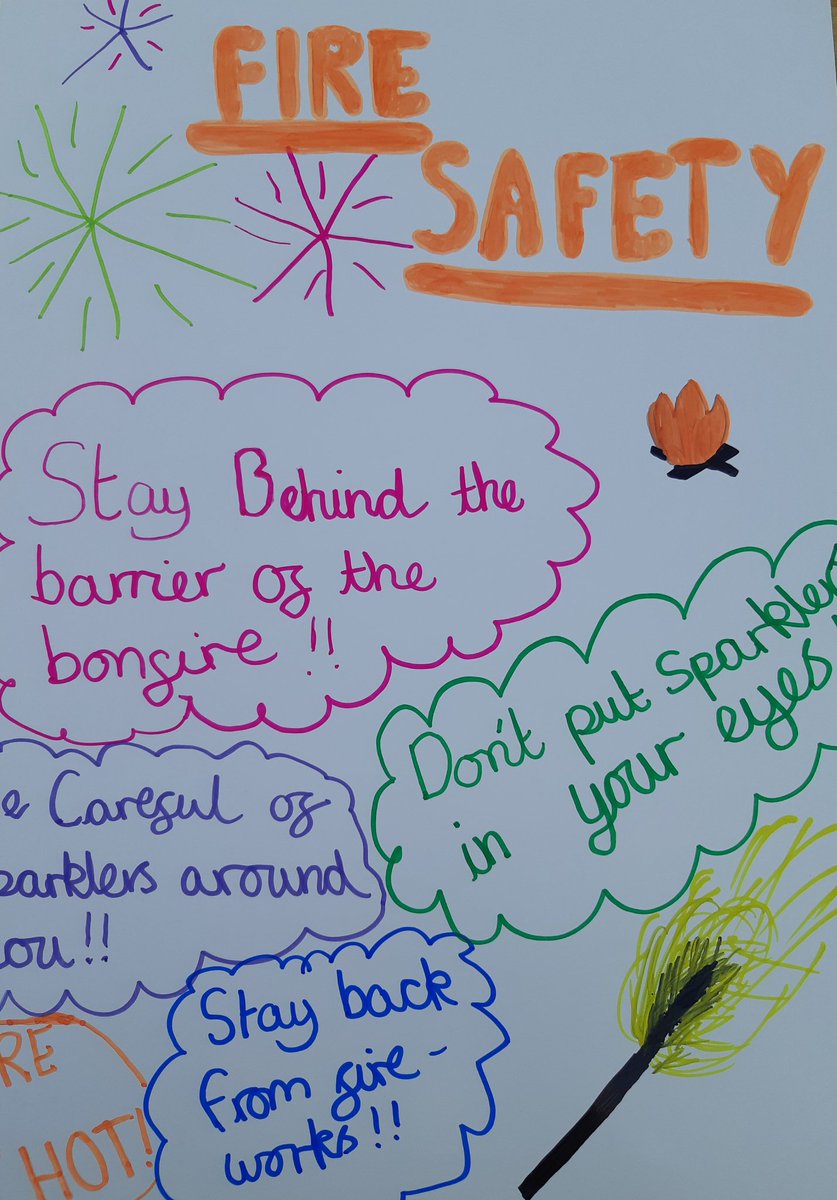 FIRE
SAFETY
Stay Behind the
barrier of the
bonfire!!
Don't put Sparklers
in your eyes!
e Careful of
parklers around
you!!
Stay back
From fire-
works!!
RE
HOT!